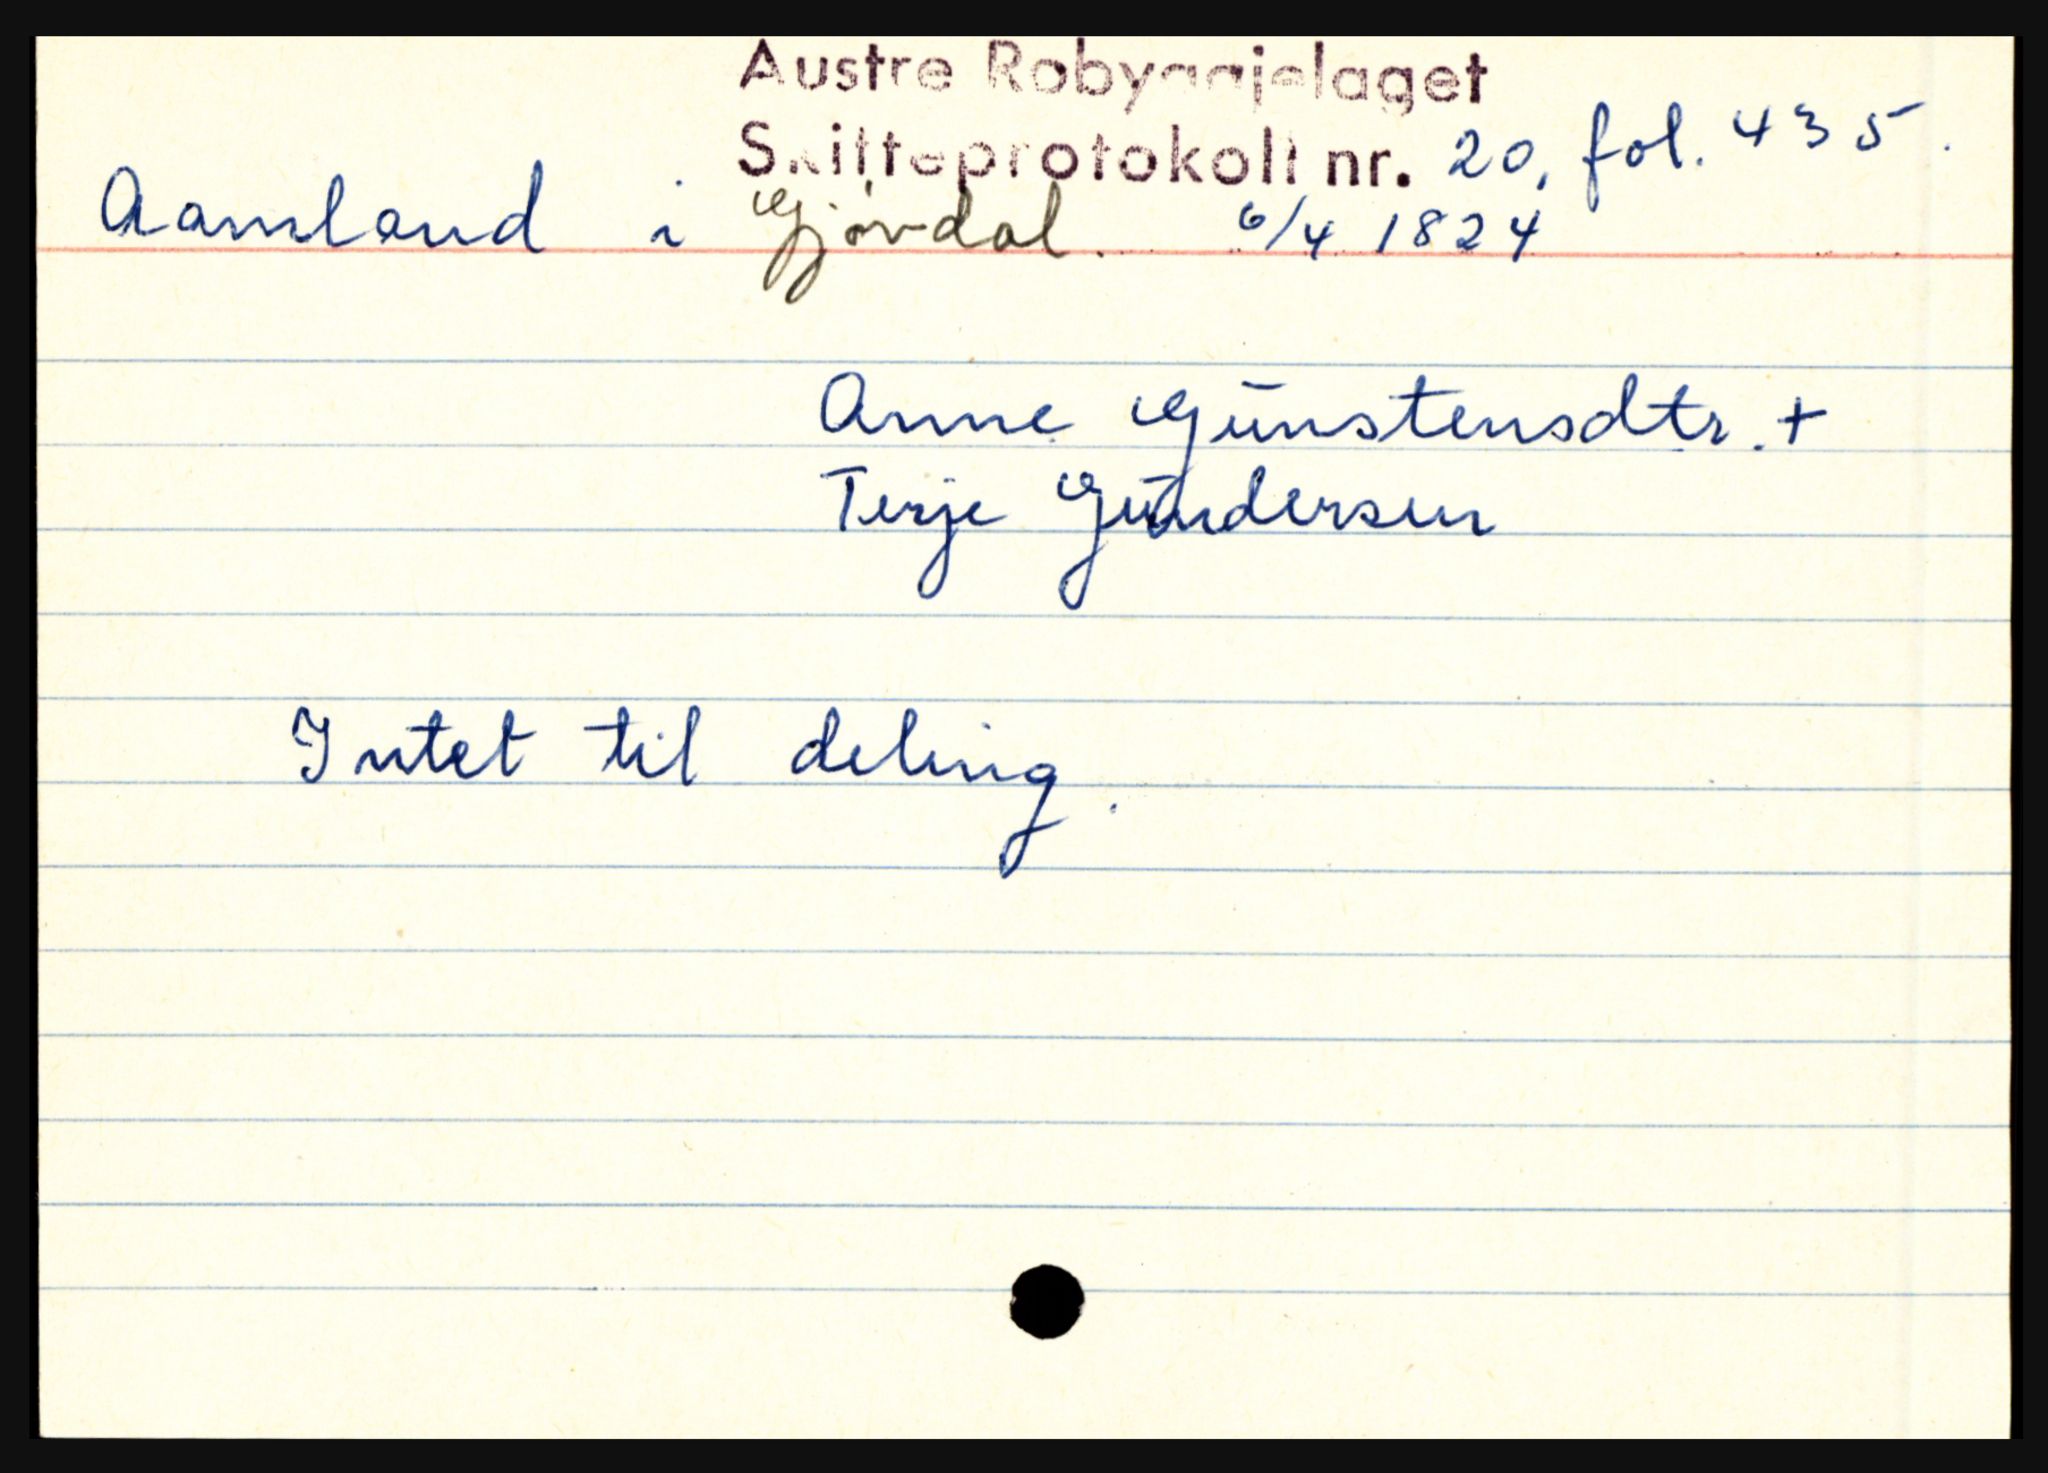 Austre Robyggjelaget
Skifteprotokoll nr. 20, fol. 435.
Aamland i Gjövdal. 6/4 1824
Anne Gūnstensdtr. +
Terje Gūndersen
Intet til deling.